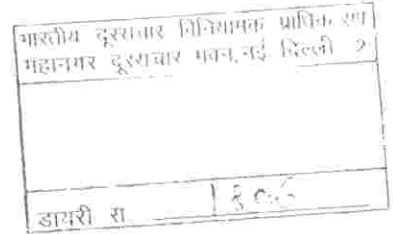 भारतीय दूरसंचार विनियामक प्राधिकरण
महानगर दूरसंचार भवन, नई दिल्ली 2
डायरी सं